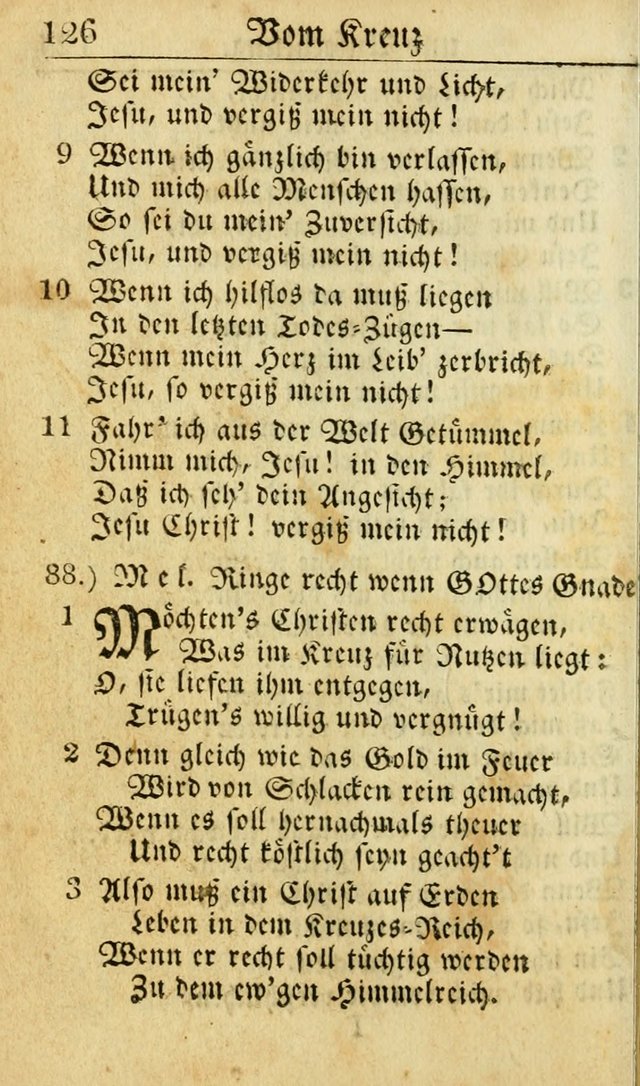 126 Vom Kreuz
Sei mein' Widerkehr und Licht,
Jesu, und vergiß mein nicht!
9 Wenn ich gänzlich bin verlassen,
Und mich alle Menschen hassen,
So sei du mein' Zuversicht,
Jesu, und vergiß mein nicht!
10 Wenn ich hilflos da muß liegen
In den letzten Todes-Zügen—
Wenn mein Herz im Leib' zerbricht,
Jesu, so vergiß mein nicht!
11 Fahr' ich aus der Welt Getümmel,
Nimm mich, Jesu! in den Himmel,
Daß ich seh' dein Angesicht;
Jesu Christ! vergiß mein nicht!
88.) Mel. Ringe recht wenn GOttes Gnade
1 Möchten's Christen recht erwägen,
Was im Kreuz für Nutzen liegt:
O, sie liefen ihm entgegen,
Trügen's willig und vergnügt!
2 Denn gleich wie das Gold im Feuer
Wird von Schlacken rein gemacht,
Wenn es soll hernachmals theuer
Und recht köstlich seyn geacht't
3 Also muß ein Christ auf Erden
Leben in dem Kreuzes-Reich,
Wenn er recht soll tüchtig werden
Zu dem ew'gen Himmelreich.